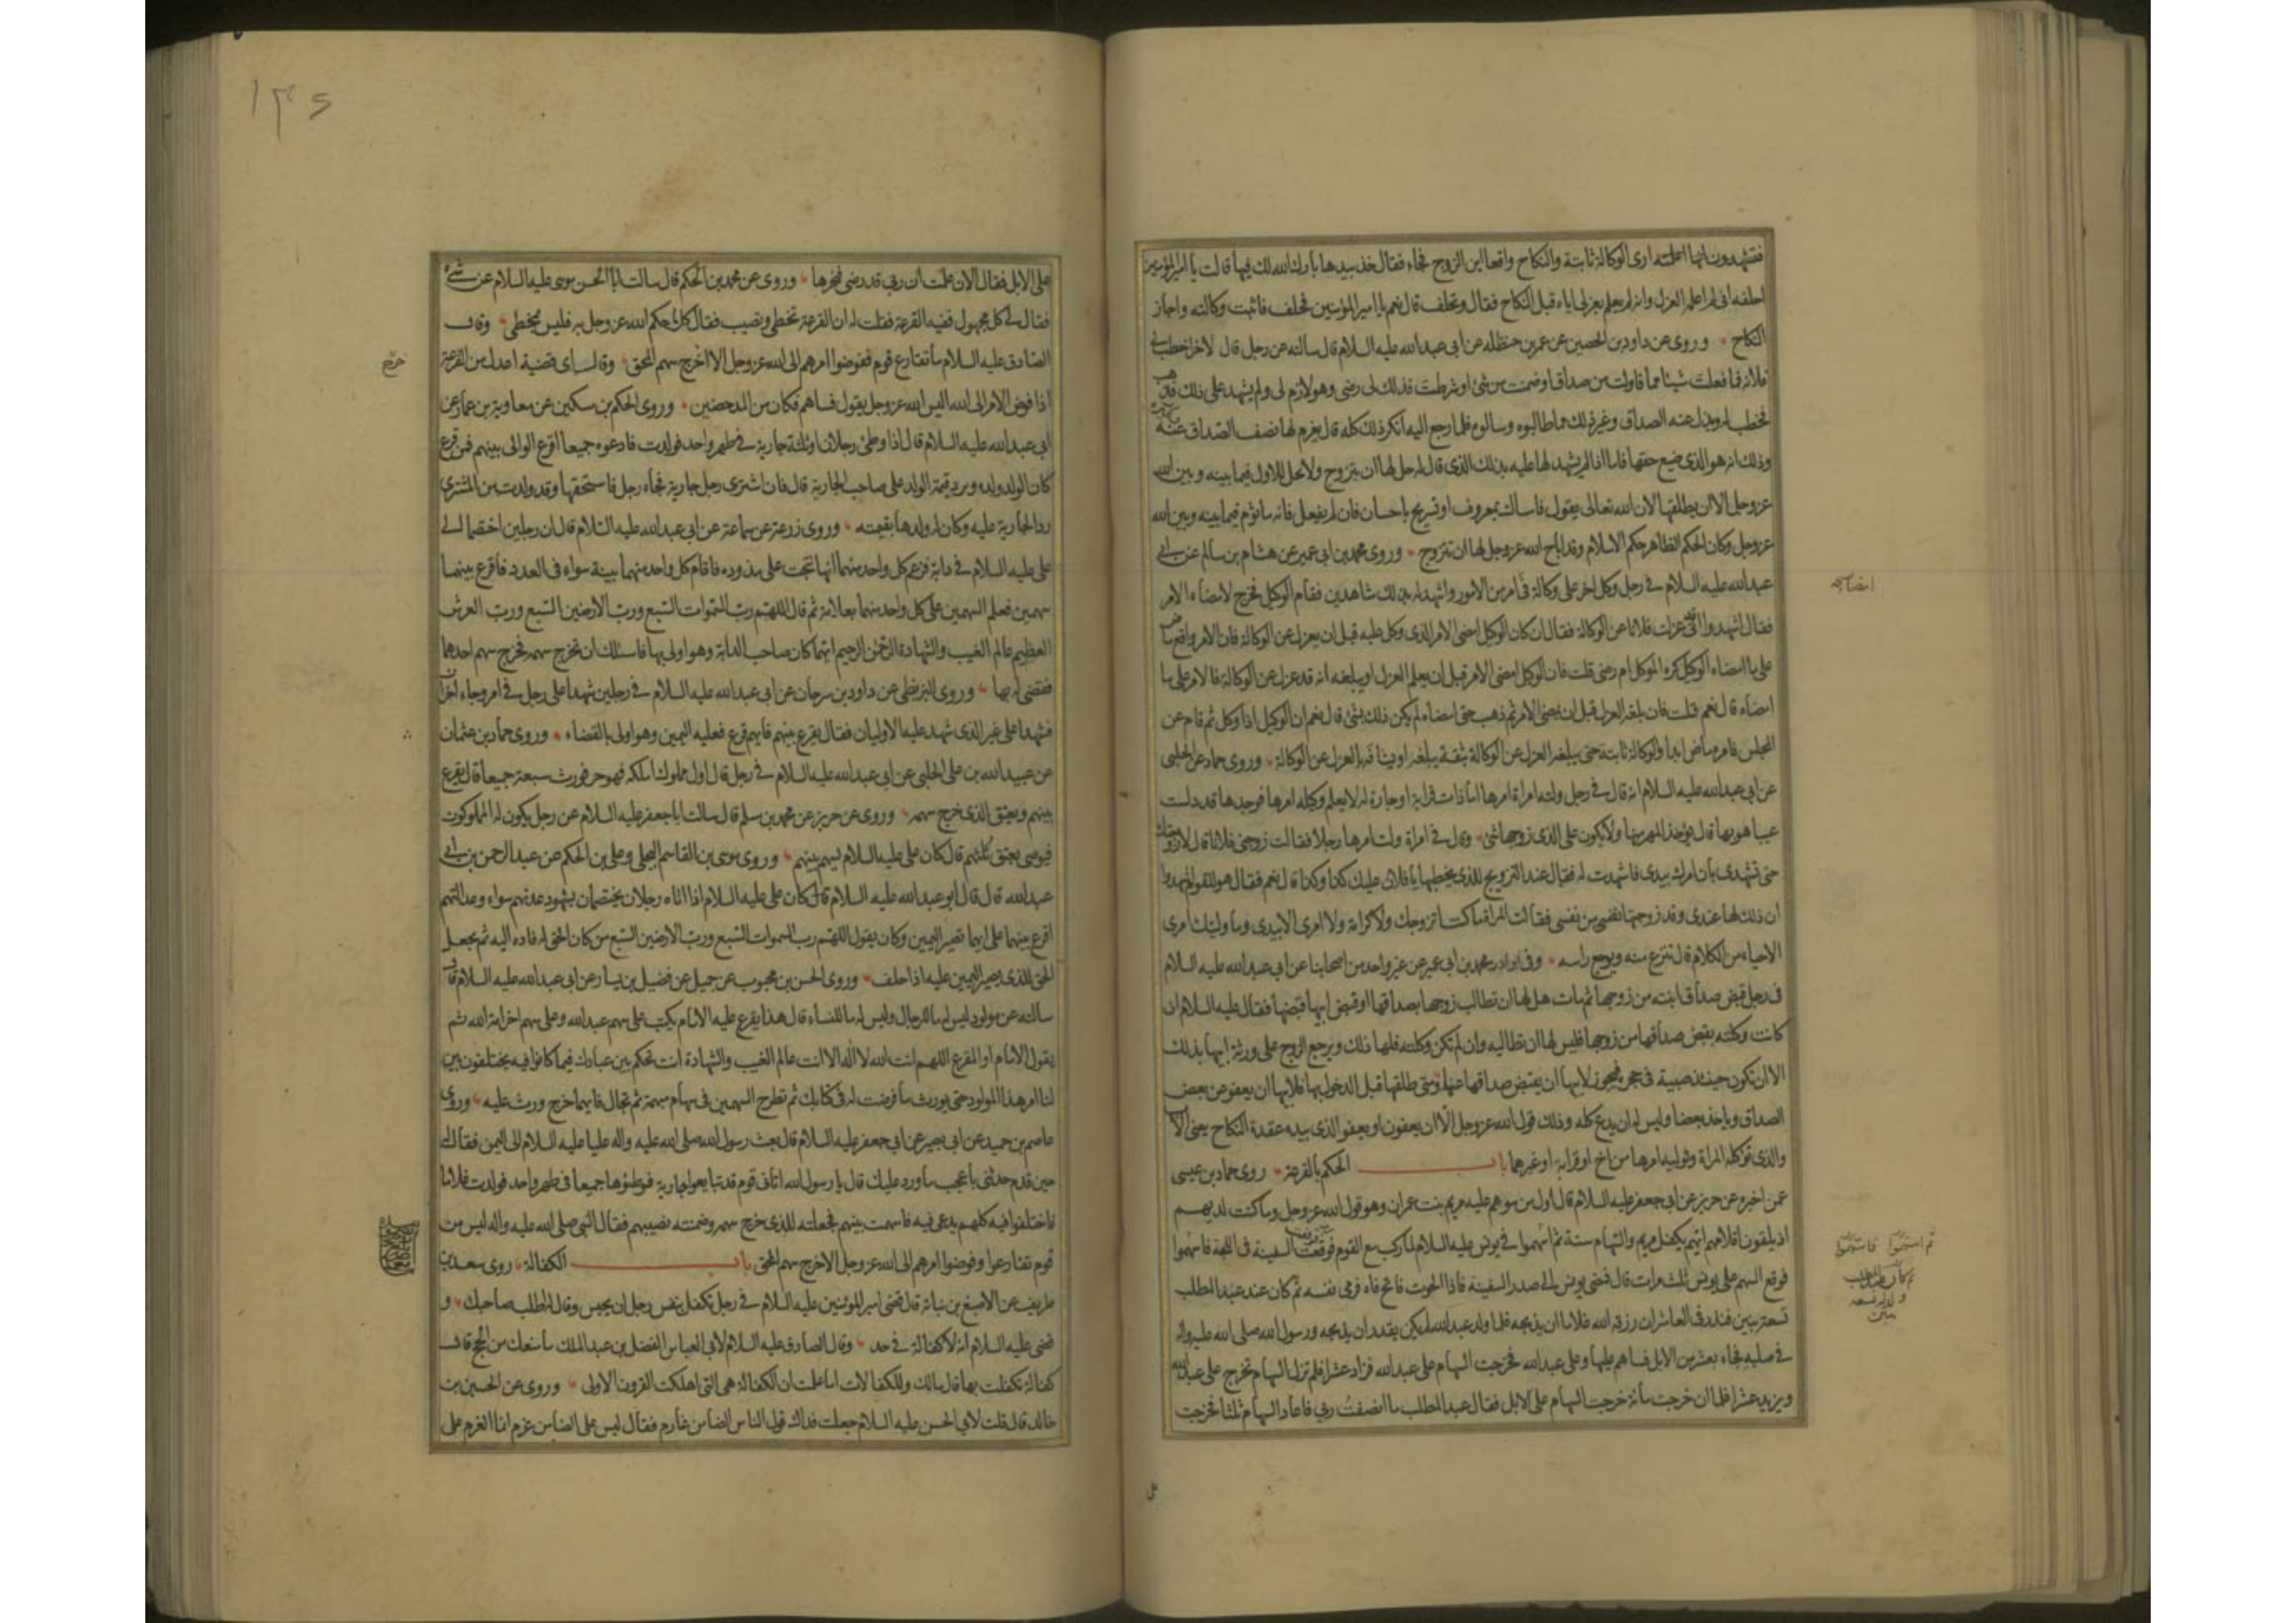 فتشهدون انها اعلمته ارى الوكالة ثابتة والنكاح واقعا اين الزوج فجاء فقال خذ بيدها بارك الله لك فيها قالت يا امير المؤمنين
احلفه انى لم اعلمه العزل وانه لم يعلم بعزلى اياه قبل النكاح فقال وتحلف قال نعم يا امير المؤمنين فحلف فاثبت وكالته واجاز
النكاح وروى عن داود بن الحصين عن عمر بن حنظله عن ابى عبد الله عليه السلام قال سالته عن رجل قال لاخر اخطب لى
فلانه فما فعلت شيئا مما قاولت من صداق او ضمنت من شئ او شرطت فذلك لى رضى وهو لازم لى ولم يشهد على ذلك فذهب
فخطب له وبذل عنه الصداق وغير ذلك مما طالبوه وسالوه فلما رجع اليه انكر ذلك كله قال يغرم لها نصف الصداق عنه
وذلك انه هو الذى ضيع حقها فلما اذا لم يشهد لها عليه بذلك الذى قال له حل لها ان يتزوج ولا تحل للاول فيما بينه وبين الله
عز وجل الا ان يطلقها لان الله تعالى يقول فامساك بمعروف او تسريح باحسان فان لم يفعل فانه ماثوم فيما بينه وبين الله
عز وجل وكان الحكم الظاهر حكم الاسلام وقد اباح الله عز وجل لها ان تتزوج وروى محمد بن ابى عمير عن هشام بن سالم عن ابى
عبد الله عليه السلام فى رجل وكل اخر على وكالة فى امر من الامور واشهد له بذلك شاهدين فقام الوكيل فخرج لامضاء الامر
فقال اشهدوا انى قد عزلت فلانا عن الوكالة فقال ان كان الوكيل امضى الامر الذى وكل عليه قبل ان يعزل عن الوكالة فان الامر واقع ماض
على ما امضاه الوكيل كره الموكل ام رضى قلت فان الوكيل امضى الامر قبل ان يعلم العزل او يبلغه انه قد عزل عن الوكالة فالامر على ما
امضاه قال نعم قلت فان بلغه العزل قبل ان يمضى الامر ثم ذهب حتى امضاه لم يكن ذلك بشئ قال نعم ان الوكيل اذا وكل ثم قام عن
المجلس فامره ماض ابدا والوكالة ثابتة حتى يبلغه العزل عن الوكالة بثقة يبلغه او يشافه بالعزل عن الوكالة وروى حماد عن الحلبى
عن ابى عبد الله عليه السلام انه قال فى رجل ولته امراة امرها اما ذات قرابة او جارة له لا يعلم وكيله امرها فوجدها قد دلست
عيبا هو بها قال يؤخذ المهر منها ولا يكون على الذى زوجها شئ وقال فى امراة ولت امرها رجلا فقالت زوجنى فلانا قال لا ازوجك
حتى تشهدى بان امرك بيدى فاشهدت له فقال عند التزويج للذى يخطبها يا فلان عليك كذا وكذا قال نعم فقال هو للقوم اشهدوا
ان ذلك لها عندى وقد زوجتها نفسى من نفسى فقالت المراة ما كنت اتزوجك ولا كرامة ولا امرى الا بيدى وما وليتك امرى
الا حياء من الكلام قال تنزع منه ويوجع راسه وفى نوادر محمد بن ابى عمير عن غير واحد من اصحابنا عن ابى عبد الله عليه السلام
فى رجل قبض صداق ابنته من زوجها ثم مات هل لها ان تطالب زوجها بصداقها او قبض ابيها قبضها فقال عليه السلام ان
كانت وكلته بقبض صداقها من زوجها فليس لها ان تطالبه وان لم تكن وكلته فلها ذلك ويرجع الزوج على ورثة ابيها بذلك
الا ان تكون حينئذ صبية فى حجره فيجوز لابيها ان يقبض صداقها عنها ومتى طلقها قبل الدخول بها فلابيها ان يعفو عن بعض
الصداق وياخذ بعضا وليس له ان يدع كله وذلك قول الله عز وجل الا ان يعفون او يعفو الذى بيده عقدة النكاح يعنى الاب
والذى توكله المراة وتوليه امرها من اخ او قرابة او غيرهما باب الحكم بالقرعة روى حماد بن عيسى
عمن اخبره عن حريز عن ابى جعفر عليه السلام قال اول من سوهم عليه مريم بنت عمران وهو قول الله عز وجل وما كنت لديهم
اذ يلقون اقلامهم ايهم يكفل مريم والسهام ستة ثم استهموا فى يونس عليه السلام لما ركب مع القوم فوقعت السفينة فى اللجة فاستهموا
فوقع السهم على يونس ثلث مرات قال فمضى يونس الى صدر السفينة فاذا الحوت فاتح فاه فرمى نفسه ثم كان عند عبد المطلب
تسعة بنين فنذر فى العاشر ان رزقه الله غلاما ان يذبحه فلما ولد عبد الله لم يكن يقدر ان يذبحه ورسول الله صلى الله عليه واله
فى صلبه فجاء بعشر من الابل فساهم عليها وعلى عبد الله فخرجت السهام على عبد الله فزاد عشرا فلم تزل السهام تخرج على عبد الله
ويزيد عشرا فلما ان خرجت مائة خرجت السهام على الابل فقال عبد المطلب ما انصفت ربى فاعاد السهام ثلثا فخرجت
على
١٣٥
على الابل فقال الان علمت ان ربى قد رضى فنحرها وروى عن محمد بن الحكم قال سالت ابا الحسن موسى عليه السلام عن شئ
فقال لى كل مجهول ففيه القرعة فقلت له ان القرعة تخطى وتصيب فقال كل ما حكم الله عز وجل به فليس بمخطى وقال
الصادق عليه السلام ما تقارع قوم ففوضوا امرهم الى الله عز وجل الا اخرج سهم المحق وقال اى قضية اعدل من القرعة
اذا فوض الامر الى الله اليس الله عز وجل يقول فساهم فكان من المدحضين وروى الحكم بن مسكين عن معاوية بن عمار عن
ابى عبد الله عليه السلام قال اذا وطئ رجلان او ثلثة جارية فى طهر واحد فولدت فادعوه جميعا اقرع الوالى بينهم فمن قرع
كان الولد ولده ويرد قيمة الولد على صاحب الجارية قال فان اشترى رجل جارية فجاء رجل فاستحقها وقد ولدت من المشترى
رد الجارية عليه وكان له ولدها بقيمته وروى زرعة عن سماعة عن ابى عبد الله عليه السلام قال ان رجلين اختصما الى
على عليه السلام فى دابة فزعم كل واحد منهما انها نتجت على مذوده فاقام كل واحد منهما بينة سواء فى العدد فاقرع بينهما
سهمين فعلم السهمين على كل واحد منهما بعلامة ثم قال اللهم رب السموات السبع ورب الارضين السبع ورب العرش
العظيم عالم الغيب والشهادة الرحمن الرحيم ايهما كان صاحب الدابة وهو اولى بها فاسئلك ان تخرج سهمه فخرج سهم احدهما
فقضى له بها وروى البزنطى عن داود بن سرحان عن ابى عبد الله عليه السلام فى رجلين شهدا على رجل فى امر وجاء اخران
فشهدا على غير الذى شهد عليه الاوليان فقال يقرع بينهم فايهم قرع فعليه اليمين وهو اولى بالقضاء وروى حماد بن عثمان
عن عبيد الله بن على الحلبى عن ابى عبد الله عليه السلام فى رجل قال اول مملوك املكه فهو حر فورث سبعة جميعا قال يقرع
بينهم ويعتق الذى خرج سهمه وروى عن حريز عن محمد بن مسلم قال سالت ابا جعفر عليه السلام عن رجل يكون له المملوكون
فيوصى بعتق ثلثهم قال كان على عليه السلام يسهم بينهم وروى موسى بن القاسم البجلى وعلى بن الحكم عن عبد الرحمن بن ابى
عبد الله قال قال ابو عبد الله عليه السلام قال كان على عليه السلام اذا اتاه رجلان يختصمان بشهود عدتهم سواء وعدالتهم
اقرع بينهما على ايهما تصير اليمين وكان يقول اللهم رب السموات السبع ورب الارضين السبع من كان الحق له فاده اليه ثم يجعل
الحق للذى يصير اليمين عليه اذا حلف وروى الحسن بن محبوب عن جميل عن فضيل بن يسار عن ابى عبد الله عليه السلام قال
سالته عن مولود ليس له ما للرجال وليس له ما للنساء قال هذا يقرع عليه الامام يكتب على سهم عبد الله وعلى سهم اخر امة الله ثم
يقول الامام او المقرع اللهم انت الله لا اله الا انت عالم الغيب والشهادة انت تحكم بين عبادك فيما كانوا فيه يختلفون بين
لنا امر هذا المولود حتى يورث ما فرضت له فى كتابك ثم تطرح السهمين فى سهام مبهمة ثم تجال فايهما خرج ورث عليه وروى
عاصم بن حميد عن ابى بصير عن ابى جعفر عليه السلام قال بعث رسول الله صلى الله عليه واله عليا عليه السلام الى اليمن فقال له
حين قدم حدثنى باعجب ما ورد عليك قال يا رسول الله اتانى قوم قد تبايعوا جارية فوطئوها جميعا فى طهر واحد فولدت غلاما
فاختلفوا فيه كلهم يدعى فيه فاسهمت بينهم فجعلته للذى خرج سهمه وضمنته نصيبهم فقال النبى صلى الله عليه واله ليس من
قوم تقارعوا وفوضوا امرهم الى الله عز وجل الا خرج سهم المحق باب الكفالة روى سعد بن
طريف عن الاصبغ بن نباته قال قضى امير المؤمنين عليه السلام فى رجل تكفل بنفس رجل ان يحبس وقال اطلب صاحبك و
قضى عليه السلام انه لا كفالة فى حد وقال الصادق عليه السلام لابى العباس الفضل بن عبد الملك ما منعك من الحج قال
كفالة تكفلت بها قال مالك وللكفالات اما علمت ان الكفالة هى التى اهلكت القرون الاولى وروى عن الحسين بن
خالد قال قلت لابى الحسن عليه السلام جعلت فداك قول الناس الضامن غارم فقال ليس على الضامن غرم انما الغرم على